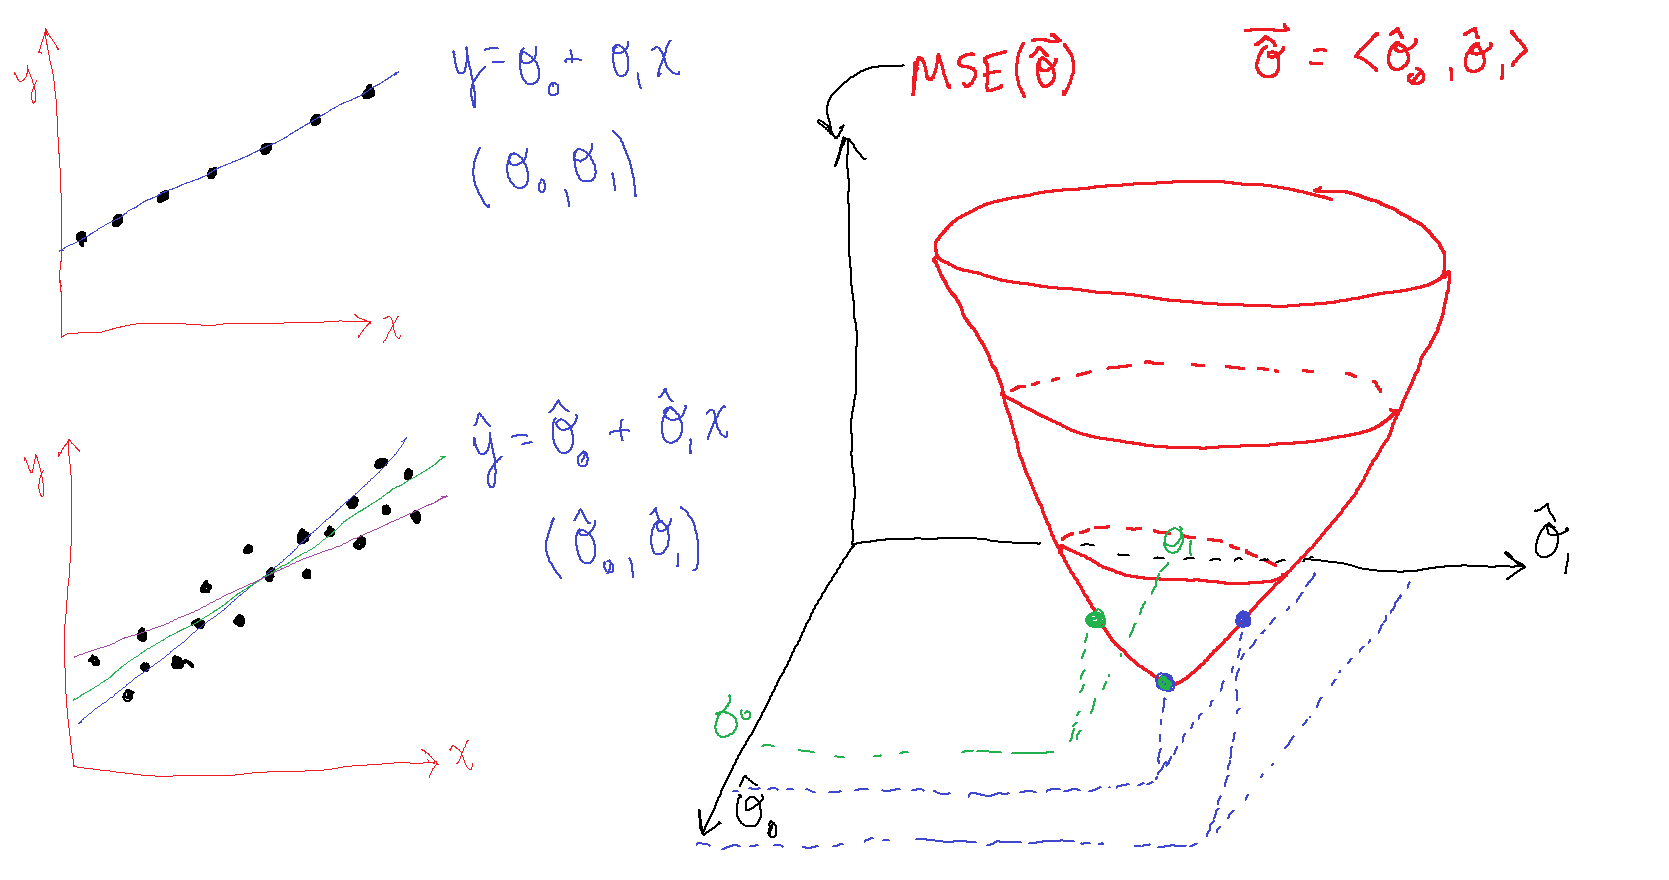 y
y = θ₀ + θ₁x
(θ₀, θ₁)
x
y
ŷ = θ̂₀ + θ̂₁x
(θ̂₀, θ̂₁)
x
MSE(θ̂⃗)
θ̂⃗ = <θ̂₀, θ̂₁>
θ̂₁
θ₁
θ₀
θ̂₀